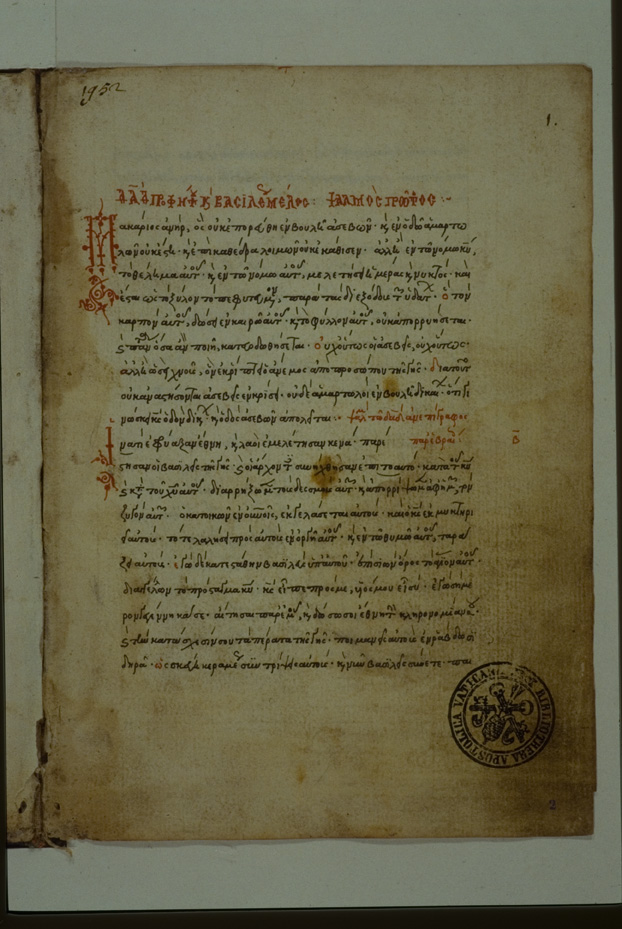 1952
1.
ΔΑΔ ΠΡΟΦΗΤ Κ ΒΑΣΙΛΕ ΜΕΛΟΣ : ΨΑΛΜΟΣ ΠΡΩΤΟΣ :-
Μακάριος ἀνήρ, ὃς οὐκ ἐπορεύθη ἐν βουλῆ ἀσεβῶν · κ ἐν ὁδῶ ἁμαρτω
λῶν οὐκ ἔστη · κ ἐπι καθέδρα λοιμῶν οὐκ ἐκάθισεν · ἀλλ ἐν τῶ νόμω κυ,
το θέλημα αὐτοῦ · κ ἐν τῶ νόμω αὐτοῦ, μελετήσει ἡμέρας κ νυκτός · και
ἔσται ὡς τὸ ξύλον τὸ πεφυτευμεν, παρα τας διεξόδους τ ὑδατ · ὃ τὸν
καρπον αὐτοῦ, δώσει ἐν καιρῶ αὐτοῦ · κ τὸ φύλλον αὐτοῦ, οὐκ ἀπορρυήσεται ·
κ πάντα ὅσα ἂν ποιῆ, κατευοδωθήσεται · οὐχ οὕτως οἱ ἀσεβεῖς, οὐχ οὕτως ·
ἀλλ ἢ ὡσεὶ χνοῦς, ὃν ἐκρίπτει ὁ ἄνεμος ἀπο προσώπου τῆς γῆς · δια τοῦτο
οὐκ ἀναστήσονται ἀσεβεῖς ἐν κρίσει · οὐδὲ ἁμαρτωλοὶ ἐν βουλῆ δικαι · ὅτι γι
νώσκει κς ὁδὸν δικ · κ ὁδὸς ἀσεβῶν ἀπολεῖται · ψαλ τῶ δαδ ἀνεπίγραφος
Ἱνατί ἐφρύαξαν ἔθνη, κ λαοὶ ἐμελέτησαν κενά · παρέ παρ ἑβραί : Β
στησαν οἱ βασιλεῖς τῆς γῆς · κ οἱ ἄρχοντ συνήχθησαν ἐπι τοαυτό · κατα τ κυ
κ κτ τοῦ χυ αὐτοῦ · διαρρήξωμ τοὺς δεσμοὺς αὐτ · κ ἀπορρίψωμ ἀφ ἡμ, τὸν
ζυγὸν αὐτ · ὁ κατοικῶν ἐν οὐνοῖς, ἐκγελάσεται αὐτούς · καὶ ὁ κς ἐκμυκτηρι
εῖ αὐτούς · τότε λαλήσει πρὸς αὐτοὺς ἐν ὀργῆ αὐτοῦ · κ ἐν τῶ θυμῶ αὐτοῦ, ταρά
ξει αὐτούς · ἐγὼ δὲ κατεστάθην βασιλεὺς ὑπ αὐτοῦ · ἐπι σιὼν ὄρος τὸ ἅγιον αὐτοῦ ·
διαγγέλλων τὸ πρόσταγμα κυ · κς εἶπε πρός με, υἱός μου εἶ σύ · ἐγὼ σήμε
ρον γεγέννηκά σε · αἴτησαι παρ ἐμοῦ, κ δώσω σοι ἔθνη τ κληρονομίαν σου ·
κ τὴν κατάσχεσίν σου τὰ πέρατα τῆς γῆς · ποιμανεῖς αὐτοὺς ἐν ῥάβδω σι
δηρᾶ · ὡς σκεύη κεραμέως συντρίψεις αὐτούς · κ νῦν βασιλεῖς σύνετε · παι
BIBLIOTHECA APOSTOLICA VATICANA
2